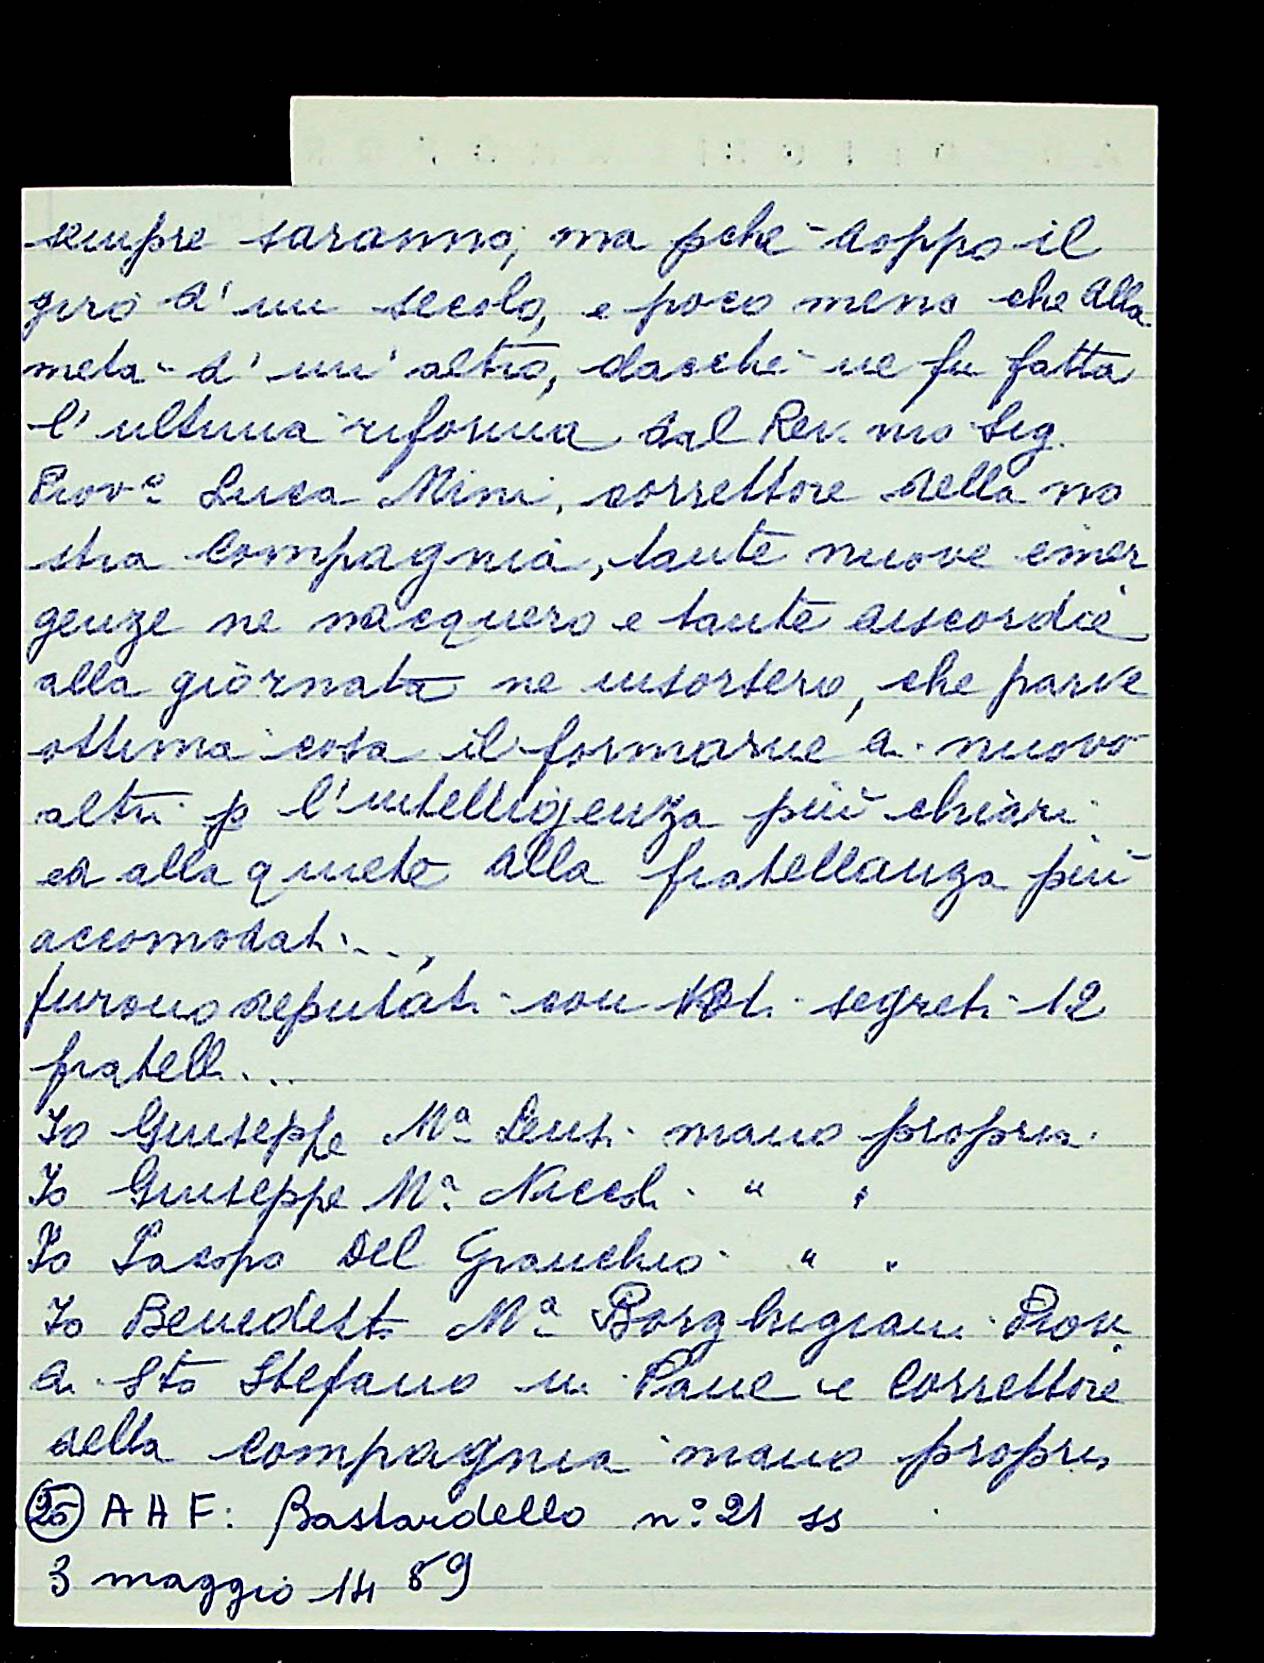 sempre saranno; ma pche doppo il
giro d'un secolo, e poco meno che alla
metà d'un'altro, dacché ne fu fatta
l'ultima riforma dal Rev. mo Sig.
Piov.º Luca Mini, correttore della no
stra Compagnia, tante nuove emer
genze ne nacquero e tante discordie
alla giornata ne insorsero, che parve
ottima cosa il formarne di nuovo
altri p l'intelligenza più chiari
ed alla quiete della fratellanza più
accomodati...,
furono deputati con voti segreti 12
fratelli...
Io Giuseppe Mª Denti mano propria
Io Giuseppe Mª Niccoli " "
Io Iacopo Del Granchio " "
Io Benedetto Mª Borghigiani Piov.
di Sto Stefano in Pane e Correttore
della Compagnia mano propria
25 A H F: Bastardello n.º 21 ss
3 maggio 1489